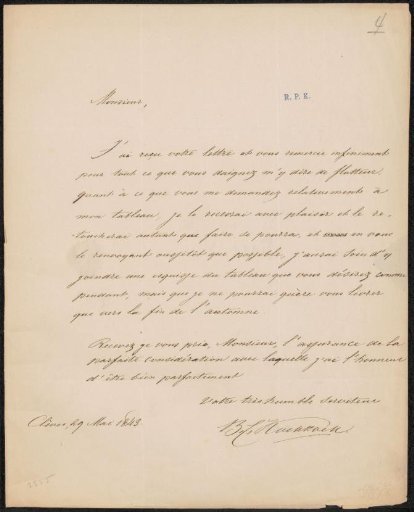 4
R. P. K.
Monsieur,
J'ai reçu votre lettre et vous remercie infiniment
pour tout ce que vous daignez m'y dire de flatteur,
quant à ce que vous me demandez relativement à
mon tableau, je le recevrai avec plaisir et le re-
toucherai autant que faire se pourra, et en vous
le renvoyant aussitôt que possible, j'aurai soin d'y
joindre une esquisse du tableau que vous désirez comme
pendant, mais que je ne pourrai guère vous livrer
que vers la fin de l'automne.
Recevez je vous prie, Monsieur, l'assurance de la
parfaite considération avec laquelle j'ai l'honneur
d'être bien parfaitement
Votre très humble Serviteur
Clèves, 29 Mai 1843.
B. C. Koekkoek